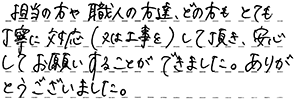 担当の方や職人の方達、どの方もとても
丁寧に対応(又は工事を)して頂き、安心
してお願いすることができました。ありが
とうございました。